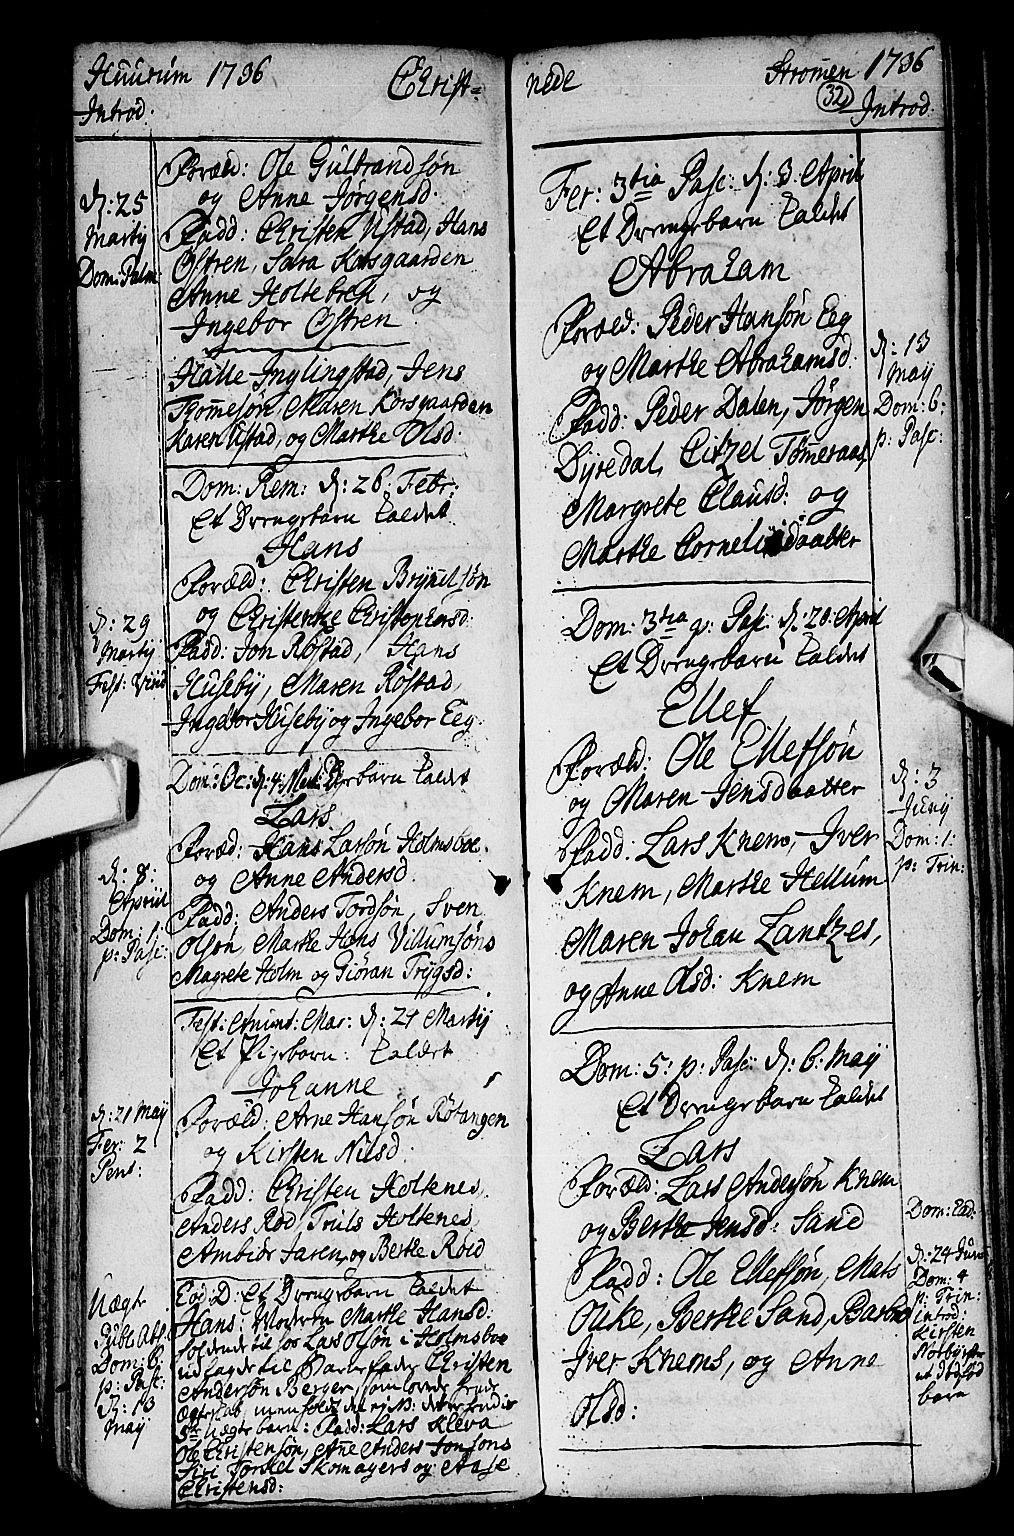 Huurum 1736 Christ=
Introd.
d: 25
Martij
Dom: Palm
Foræld: Ole Gulbrandsøn
og Anne Jørgensd:
Fadd: Christen Ustad, Hans
Østren, Sara Korsgaarden
Anne Holtebrek, og
Ingebor Østren
Halle Inglingstad, Jens
Tommesøn, Maren Korsgaarden
Karen Ustad, og Marthe Olsd:
d: 29
Martij
Fest: Vind
Dom: Rem: d: 26 Febr:
Et Drengebarn kaldet
Hans
Foræld: Christen Brynnilsøn
og Christenche Christophersd:
Fadd: Jon Røstad, Hans
Huseby, Maren Røstad,
Ingebor Huseby og Ingebor Eeg.
d: 8:
Apriil
Dom: 1
p: Pasc:
Dom: Oc: d: 4 Mart: barn kaldet
Lars
Foræld: Hans Larsøn Holmsboe
og Anne Andersd.
Fadd: Anders Tordsøn, Sven
Olsøn, Marthe Hans Villumsøns
Magrete Holm og Giøran Trygsd:
d: 21 May
Fer: 2
Pent:
Fest: Anunt: Mar: d: 21 Martij
Et Pigebarn: kaldet
Johanne
Foræld: Arne Hansøn Rotangen
og Kirsten Nilsd:
Fadd: Christen Holtenes,
Anders Rød, Truls Holtenes,
Ambiør Jaren, og Berthe Røid
Uægte
Publ: Abs:
Dom: 6
p: Pasc:
d: 13
May
Eod: D: Et Drengebarn kaldet
Hans: Moderen Marthe Hansd:
holdende til hos Lars Olsøn i Holmsboe
udlagde til Barnefader Christen
Andersøn Berger, som lovede hende
Ægteskab men holdt det ej
Uægte barn: Fadd: Lars Kleva
Ole Christensøn, Anne Anders Jonsøns
Siri Torskel Skomagers og Aase
Christensd:
nede Strømen 1736
32 Introd.
Fer: 3tia Pasc: d: 3 April
Et Drengebarn kaldet
Abraham
Foræld: Peder Hansøn Eeg
og Marthe Abrahamsd:
Fadd: Peder Dalen, Jørgen
Dyredal, Citzel Tømeraas,
Margrete Clausd: og
Marthe Cornelisdaatter
d: 13
May
Dom: 6:
p: Pasc:
Dom: 3tia p: Pasc: d: 20 April
Et Drengebarn kaldet
Ellef
Foræld: Ole Ellefsøn
og Maren Jensdaatter
Fadd: Lars Knem, Iver
Knem, Marthe Hellum
Maren Johan Lantzes,
og Anne Olsd: Knem
d: 3
Junij
Dom: 1:
p: Trin:
Dom: 5: p: Pasc: d: 6: May
Et Drengebarn kaldet
Lars
Foræld: Lars Andersøn Knem
og Berthe Jensd: Sand
Fadd: Ole Ellefsøn, Mats
Ouke, Berthe Sand, Barbro
Iver Knems, og Anne
Olsd:
Dom: Ead:
d: 24 Junij
Dom: 4
p: Trin:
introd:
Kirsten
Norbye
et dødfød
barn